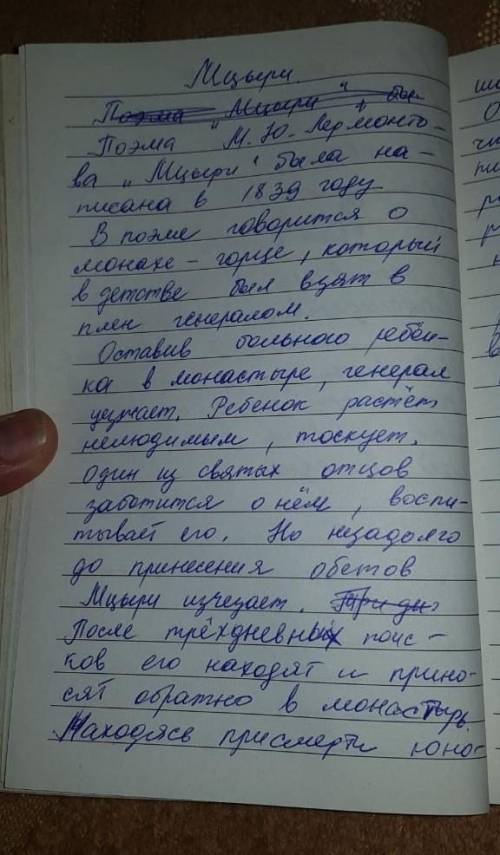 Мцыри.
Поэма "Мцыри" был
Поэма М. Ю. Лермонто-
ва "Мцыри" была на-
писана в 1839 году
В поэме говорится о
монахе - горце, который
в детстве был взят в
плен генералом.
Оставив больного ребён-
ка в монастыре, генерал
уезжает. Ребенок растёт
нелюдимым, тоскует.
Один из святых отцов
заботится о нём, воспи-
тывает его. Но незадолго
до принесения обетов
Мцыри изчезает. Три дн
После трёхдневных поис-
ков его находят и прино-
сят обратно в монастырь.
Находясь присмерти юно-